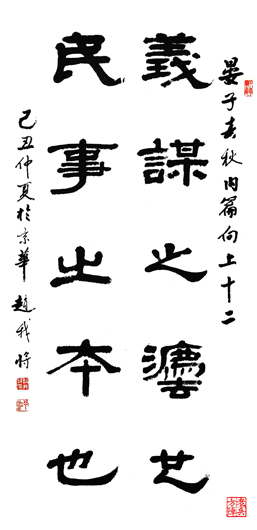 晏子春秋内篇问上十二
義謀之灋也
民事之本也
己丑仲夏於京華 趙